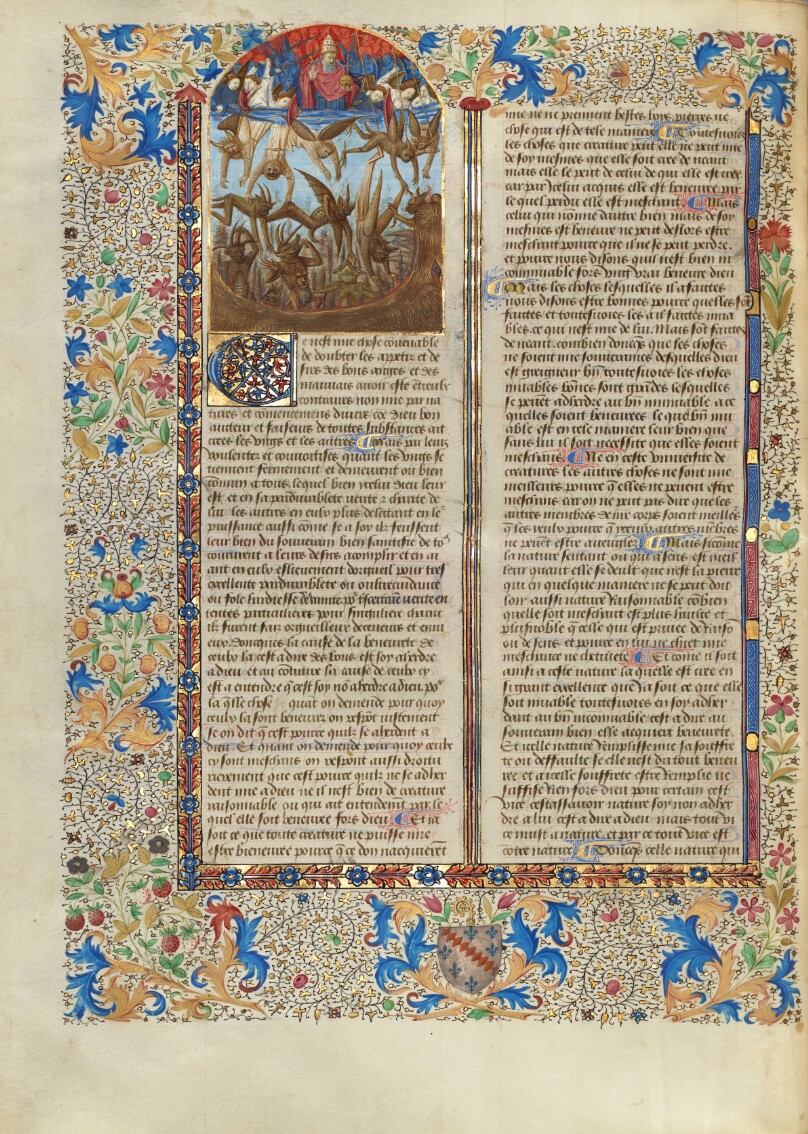 e nest mie chose couenable
de doubter les appetiz et de
sirs des bons anges et des
mauuais auoir este
contraires non mie par na
tures et commencemens diuers cõe dieu bon
aucteur et faiseur de toutes substances ait
crees les vngs et les autres Mais par leurs
voulentez et couuoitises quant les vngs se
tiennent fermement et demeurent ou bien
cõmun a tous lequel bien ycelui dieu leur
est et en sa pardurablete verite et charite de
lui les autres en eulx plus delectant en le
puissance aussi cõme se a soy ilz feussent
leur bien du souuerain bien
a leurs desirs acomplir et en ai
ant en eulx eslieuement dorgueil pour tres
excellente pardurablete ou oultrecuidance
ou fole hardiesse
pour singuliere charite
ilz furent fais orgueilleux deceueurs et enui
eux Doncques la cause de la beneurete de
ceulx la cest a dire des bons est soy aherdre
a dieu et au cõtraire la cause de ceulx cy
est a entendre q̃ cest soy nõ aherdre a dieu
la q̃lle chose quant on demende pour quoy
ceulx la sont beneurez on respõt iustement
se on dit q̃ cest pource quilz se aherdent a
dieu Et quant on demende pour quoy ceulx
cy sont meschans on respont aussi droitu
rierement que cest pource quilz ne se aher
dent mie a dieu ne il nest bien de creature
raisonnable ou qui ait entendemt par le
quel elle soit beneuree fors dieu Et ia
soit ce que toute creature ne puisse mie
estre bieneuree pource q̃ ce don nacquierent
mie ne ne prennent bestes bois pierres ne
chose qui est de tele maniere Toutesuoies
les choses que creature puet elle ne puet mie
de soy mesmes que elle soit cree de neant
mais elle le puet de celui de qui elle est cree
car par icelui acquis elle est beneuree par
le quel perdu elle est meschant Mais
celui qui non mie dautre bien mais de soy
mesmes est beneure ne peut deslors estre
meschant pource que il ne se peut perdre.
et pource nous disons quil nest bien in
commuable fors vng vrai beneure dieu
Mais les choses lesquelles il a faittes
nous disons estre bonnes pource quelles sõt
faittes et toutesuoies les a il faittes mua
bles. ce qui nest mie de lui. Mais sõt faittes
de neant. combien doncqs que les choses
ne soient mie souuerainnes desquelles dieu
est greigneur bñ toutesuoies les choses
muables bõnes sont grãdes lesquelles
se peuent adherdre au bñ inmuable a ce
quelles soient beneurees le quel bñ mu
able est en tele maniere leur bien que
sans lui il soit necessite que elles soient
meschans Ne en ceste vniuersite de
creatures les autres choses ne sont mie
meilleures pource q̃ elles ne peuent estre
meschans car on ne peut pas dire que les
autres membres de nre corps soient meilles
q̃ les yeulx pource que
ne peuent estre aueugles Mais si cõme
la nature sentant ou qui a sens est meil
leur quant elle se deult que nest la pierre
qui en quelque maniere ne se peut dou
loir aussi nature raisonnable cõbien
quelle soit meschant est plus haulte et
plus noble q̃ celle qui est priuee de raisõ
ou de sens et pource en lui ne chiet mie
meschance ne chetiuete Et cõme il soit
ainsi a ceste nature la quelle est cree en
si grant excellence que ia soit ce que elle
soit muable toutesuoies en soy adher
dant au bñ incommuable cest a dire au
souuerain bien elle acquiert beneurete
Et icelle nature nemplisse mie sa souffre
te ou deffaulte se elle nest du tout beneu
ree et a icelle souffrete estre remplie ne
suffise rien fors dieu pour certain cest
vice cest assauoir nature soy non adher
dre a lui cest a dire a dieu mais tout vi
ce nuist a nature. et par ce tout vice est
contre nature Doncqs celle nature qui